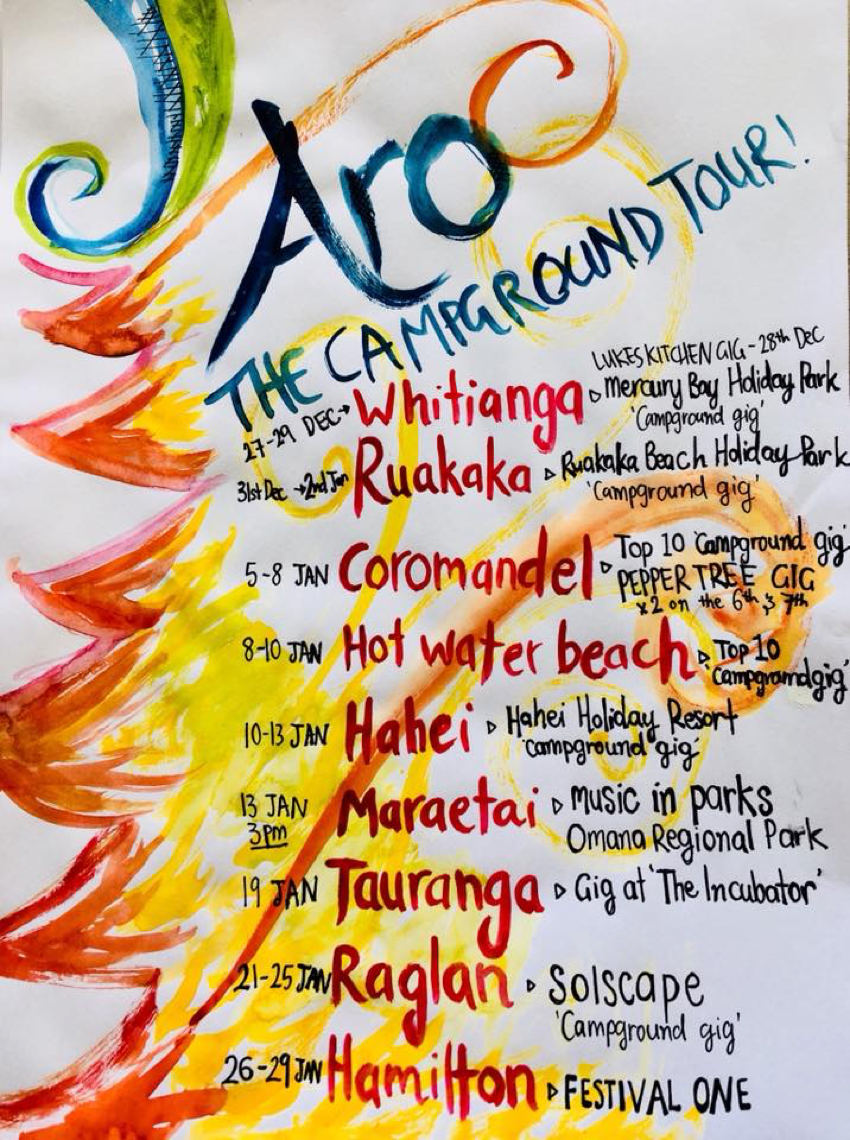 Aro
THE CAMPGROUND TOUR!
LUKES KITCHEN GIG - 28th Dec
27-29 DEC → Whitianga ▹ Mercury Bay Holiday Park
'Campground gig'
31st Dec → 2nd Jan Ruakaka ▹ Ruakaka Beach Holiday Park
'Campground gig'
5-8 JAN Coromandel ▹ Top 10 'Campground gig'
PEPPER TREE GIG
x2 on the 6th & 7th
8-10 JAN Hot water beach ▹ Top 10
'campground gig'
10-13 JAN Hahei ▹ Hahei Holiday Resort
'campground gig'
13 JAN Maraetai ▹ music in parks
3pm Omana Regional Park
19 JAN Tauranga ▹ Gig at 'The Incubator'
21-25 JAN Raglan ▹ Solscape
'Campground gig'
26-29 JAN Hamilton ▹ FESTIVAL ONE